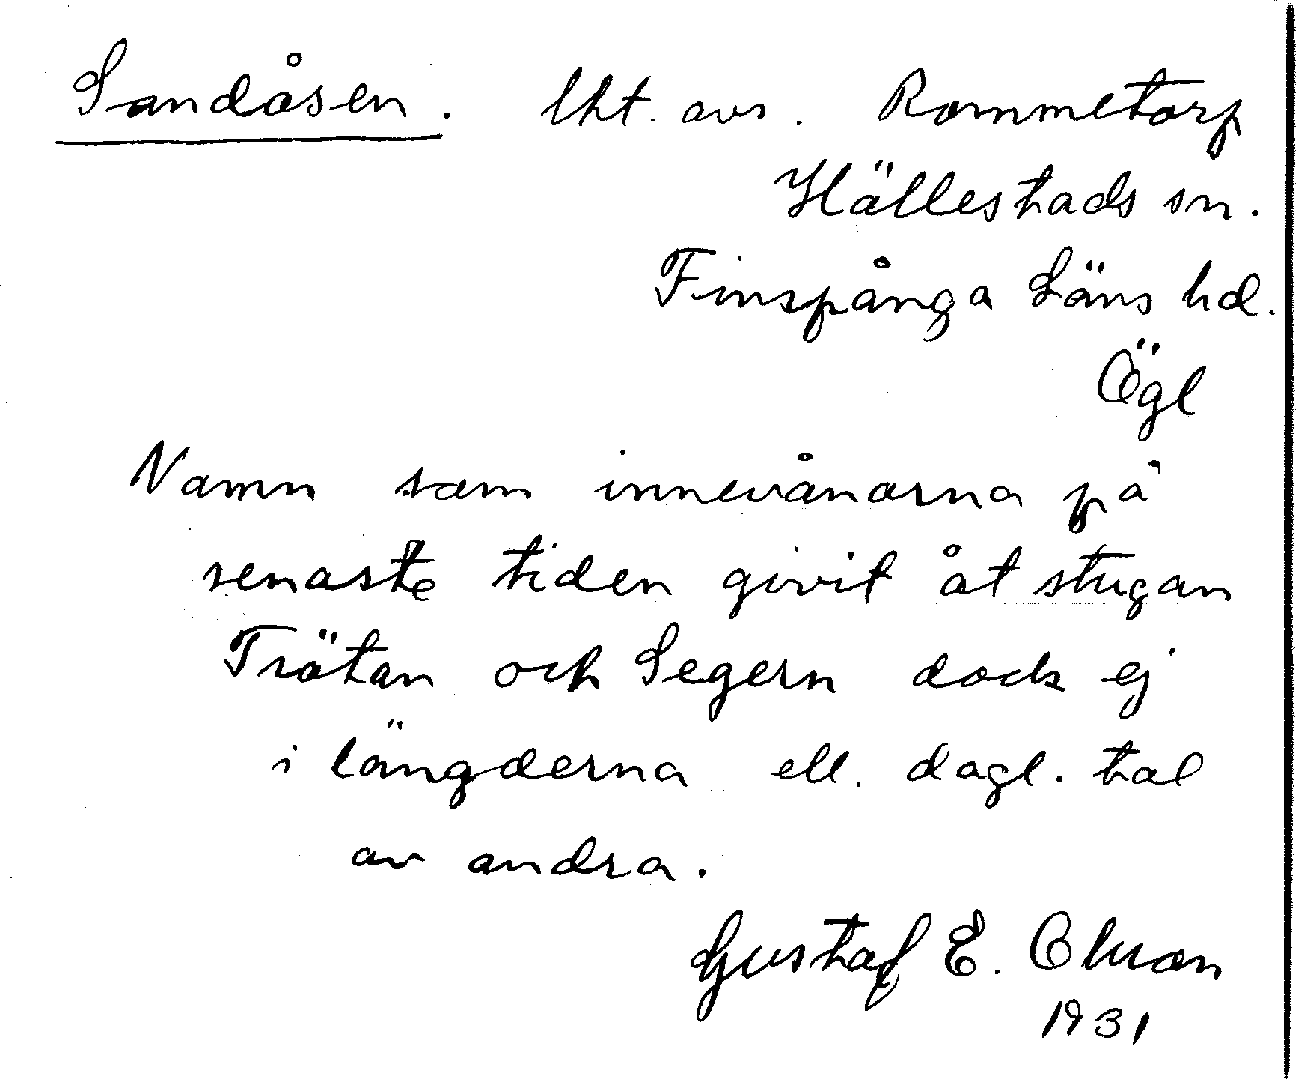 Sandåsen. lht. avs. Rommetorp
Hällestads sn.
Finspånga Läns hd.
Ögl
Namn som innevånarna på
senaste tiden givit åt stugan
Trätan och Segern dock ej
i längderna ell. dagl. tal
av andra.
Gustaf E. Olsson
1931